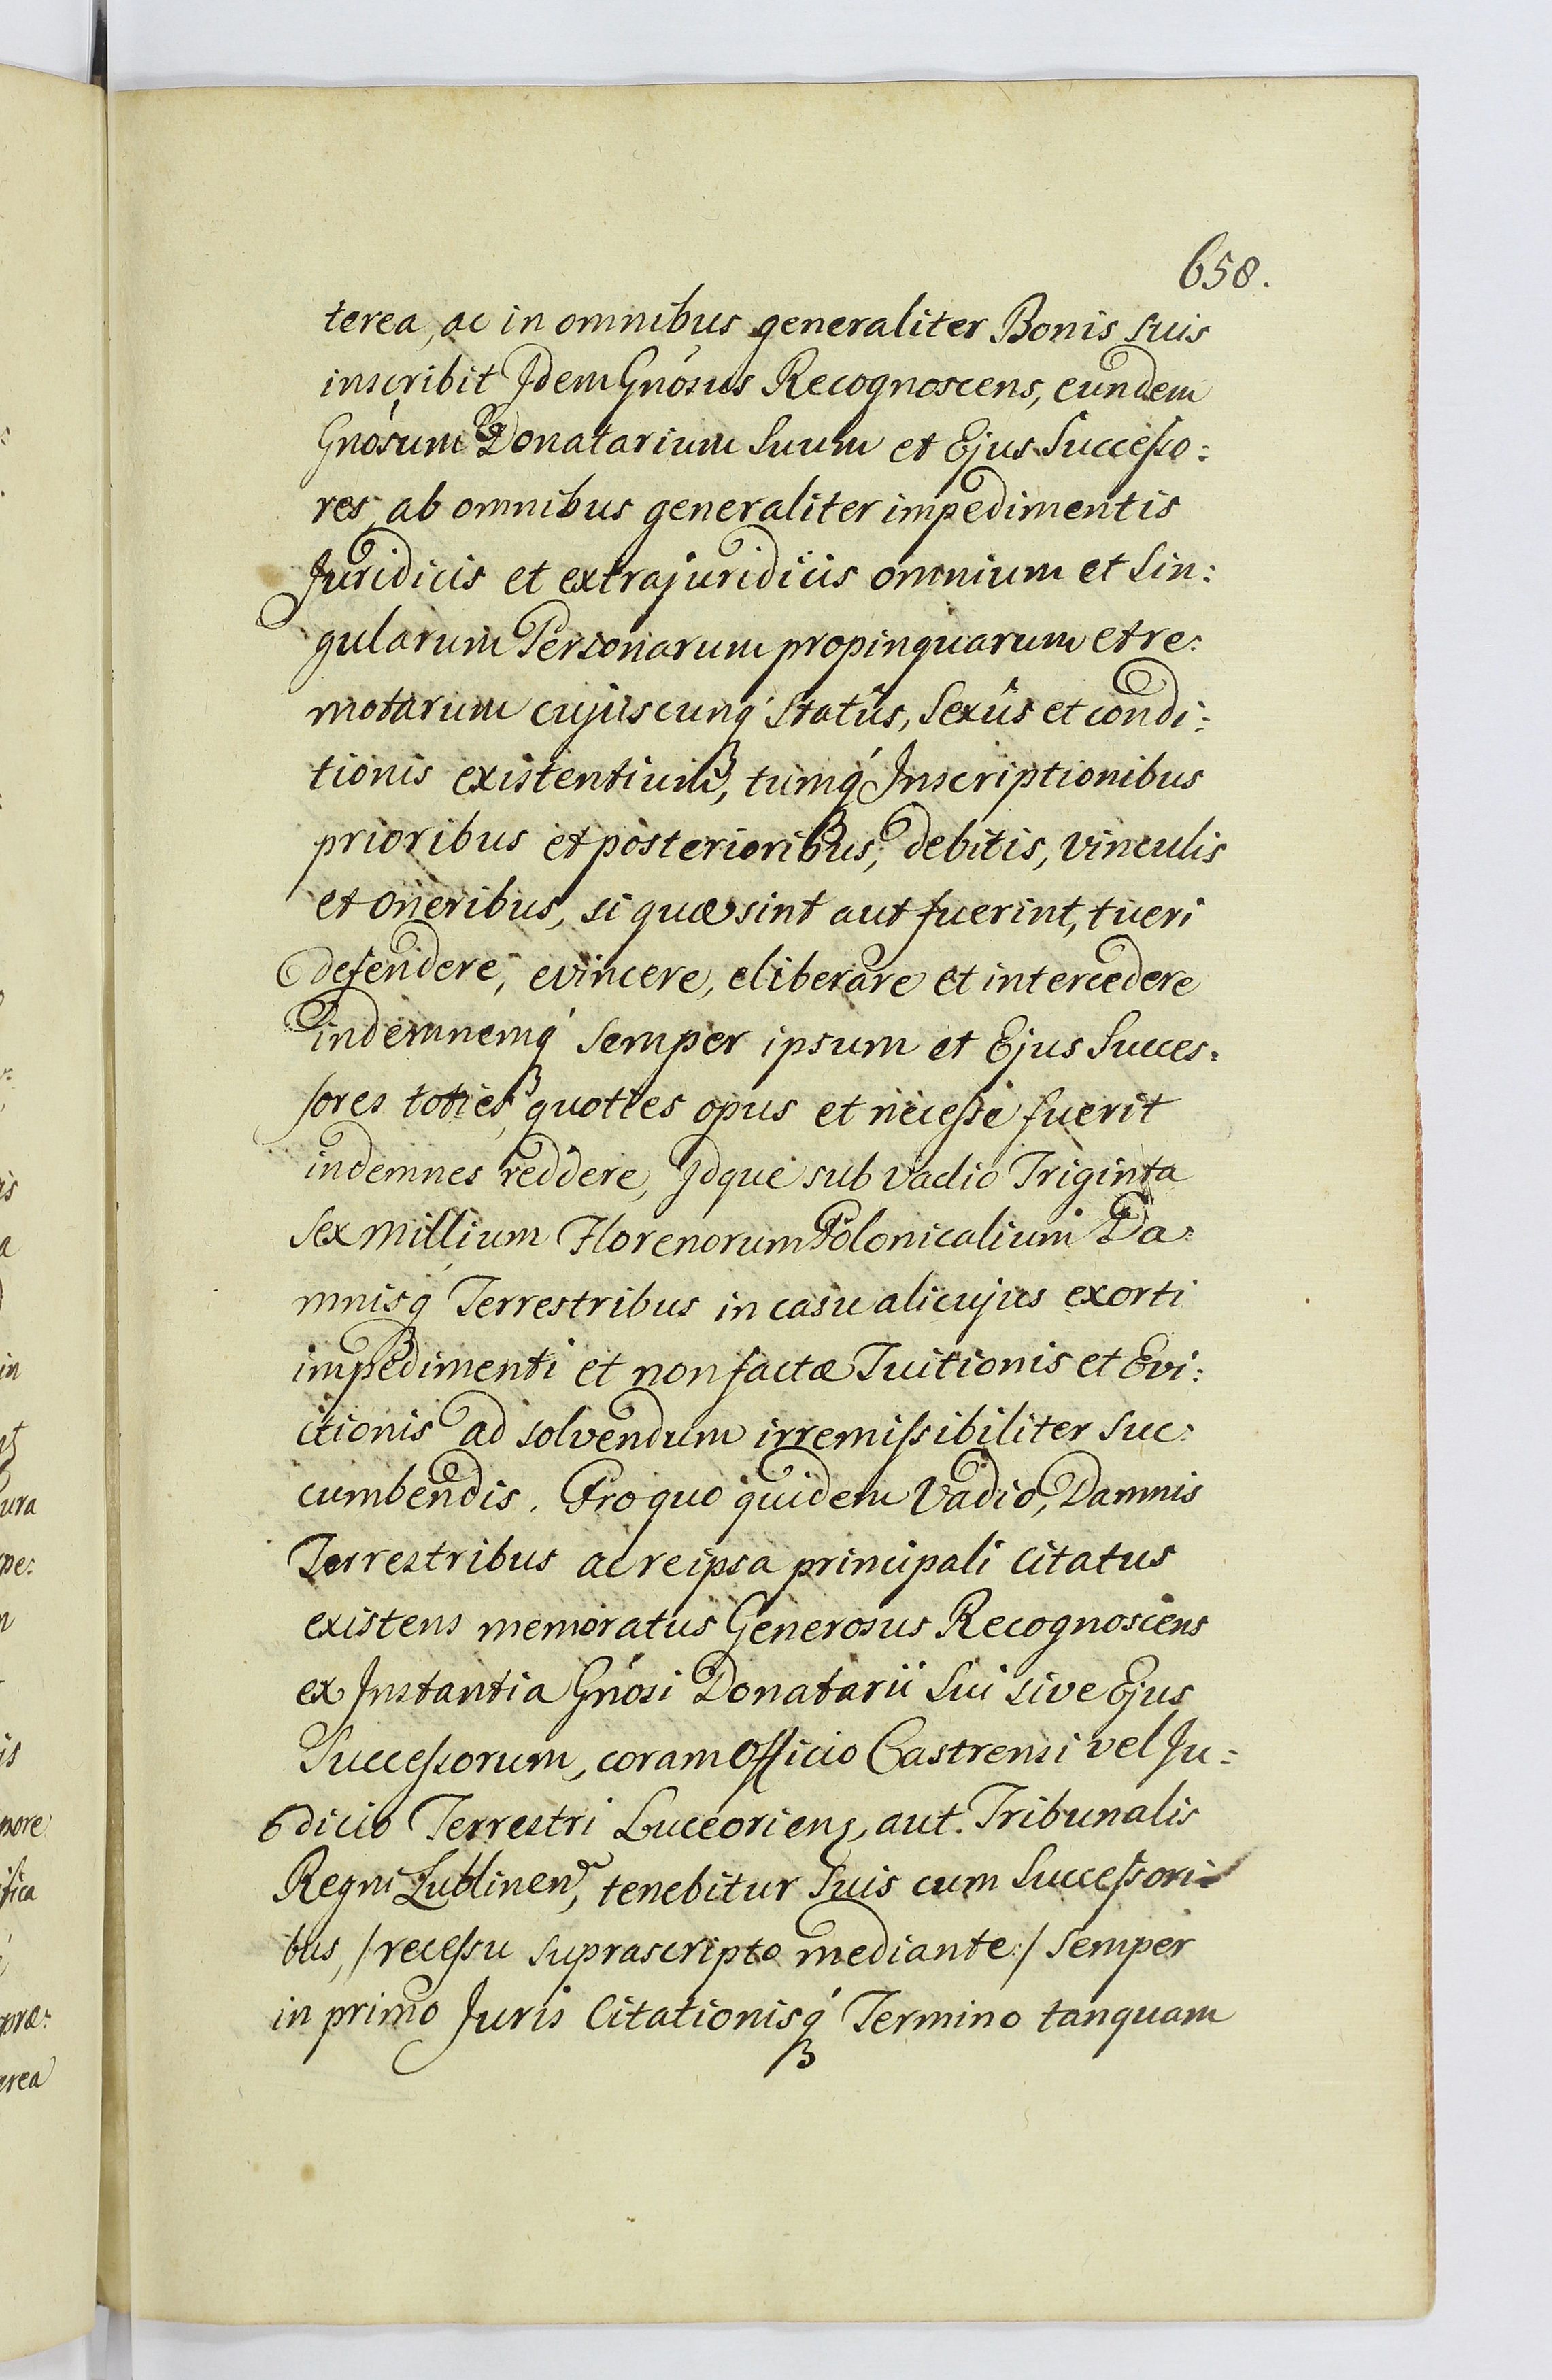 658.
terea, ac in omnibus generaliter Bonis suis
inscribit Idem Gnósus Recognoscens, eundem
Gnósum Donatarium Suum et Ejus Successo:
res, ab omnibus generaliter impedimentis
Juridicis et extrajuridicis omnium et Sin:
gularum Personarum propinquarum et re:
motarum cujuscunq́ Statûs, Sexûs et condi:
tionis existentium, tumq́ Inscriptionibus
prioribus et posterioribus, debitis, vinculis
et oneribus, si quæ sint aut fuerint, tueri
defendere, evincere, eliberare et intercedere
indemnemq́ semper ipsum et Ejus Succes:
sores toties, quoties opus et necesse fuerit
indemnes reddere, Idque sub vadio Triginta
Sex Millium Florenorum Polonicalium Da:
mnisq́ Terrestribus in casu alicujus exorti
impedimenti et non factæ Tuitionis et Evi:
ctionis ad solvendum irremissibiliter suc:
cumbendis. Pro quo quidem Vadio, Damnis
Terrestribus ac re ipsa principali citatus
existens memoratus Generosus Recognoscens
ex Instantia Gnósi Donatarii Sui sive Ejus
Successorum, coram Officio Castrensi vel Ju:
dicio Terrestri Luceorien, aut Tribunalis
Regni Lublinen, tenebitur Suis cum Successori:
bus, /recessu suprascripto mediante:/ semper
in primo Juris Citationisq́ Termino tanquam